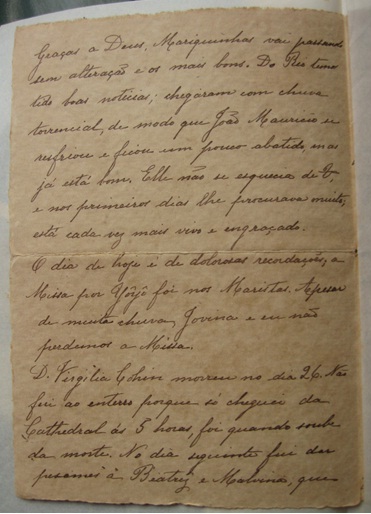 Graças a Deus, Mariquinhas vai passando
sem alteração e os mais bons. Do Rio temos
tido boas noticias; chegaram com chuva
torrencial, de modo que João Mauricio se
resfriou e ficou um pouco abatido, mas
já está bom. Elle não se esquecia de V.,
e nos primeiros dias lhe procurava muito;
está cada vez mais vivo e engraçado.
O dia de hoje é de dolorosas recordações, a
Missa por Yôyô foi nos Maristas. Apesar
de muita chuva, Jovina e eu não
perdemos a Missa.
D. Virgilia Cohin morreu no dia 26. Não
fui ao enterro porque só cheguei da
Cathedral ás 5 horas, foi quando soube
da morte. No dia seguinte fui dar
pesames à Beatriz e Malvina, que